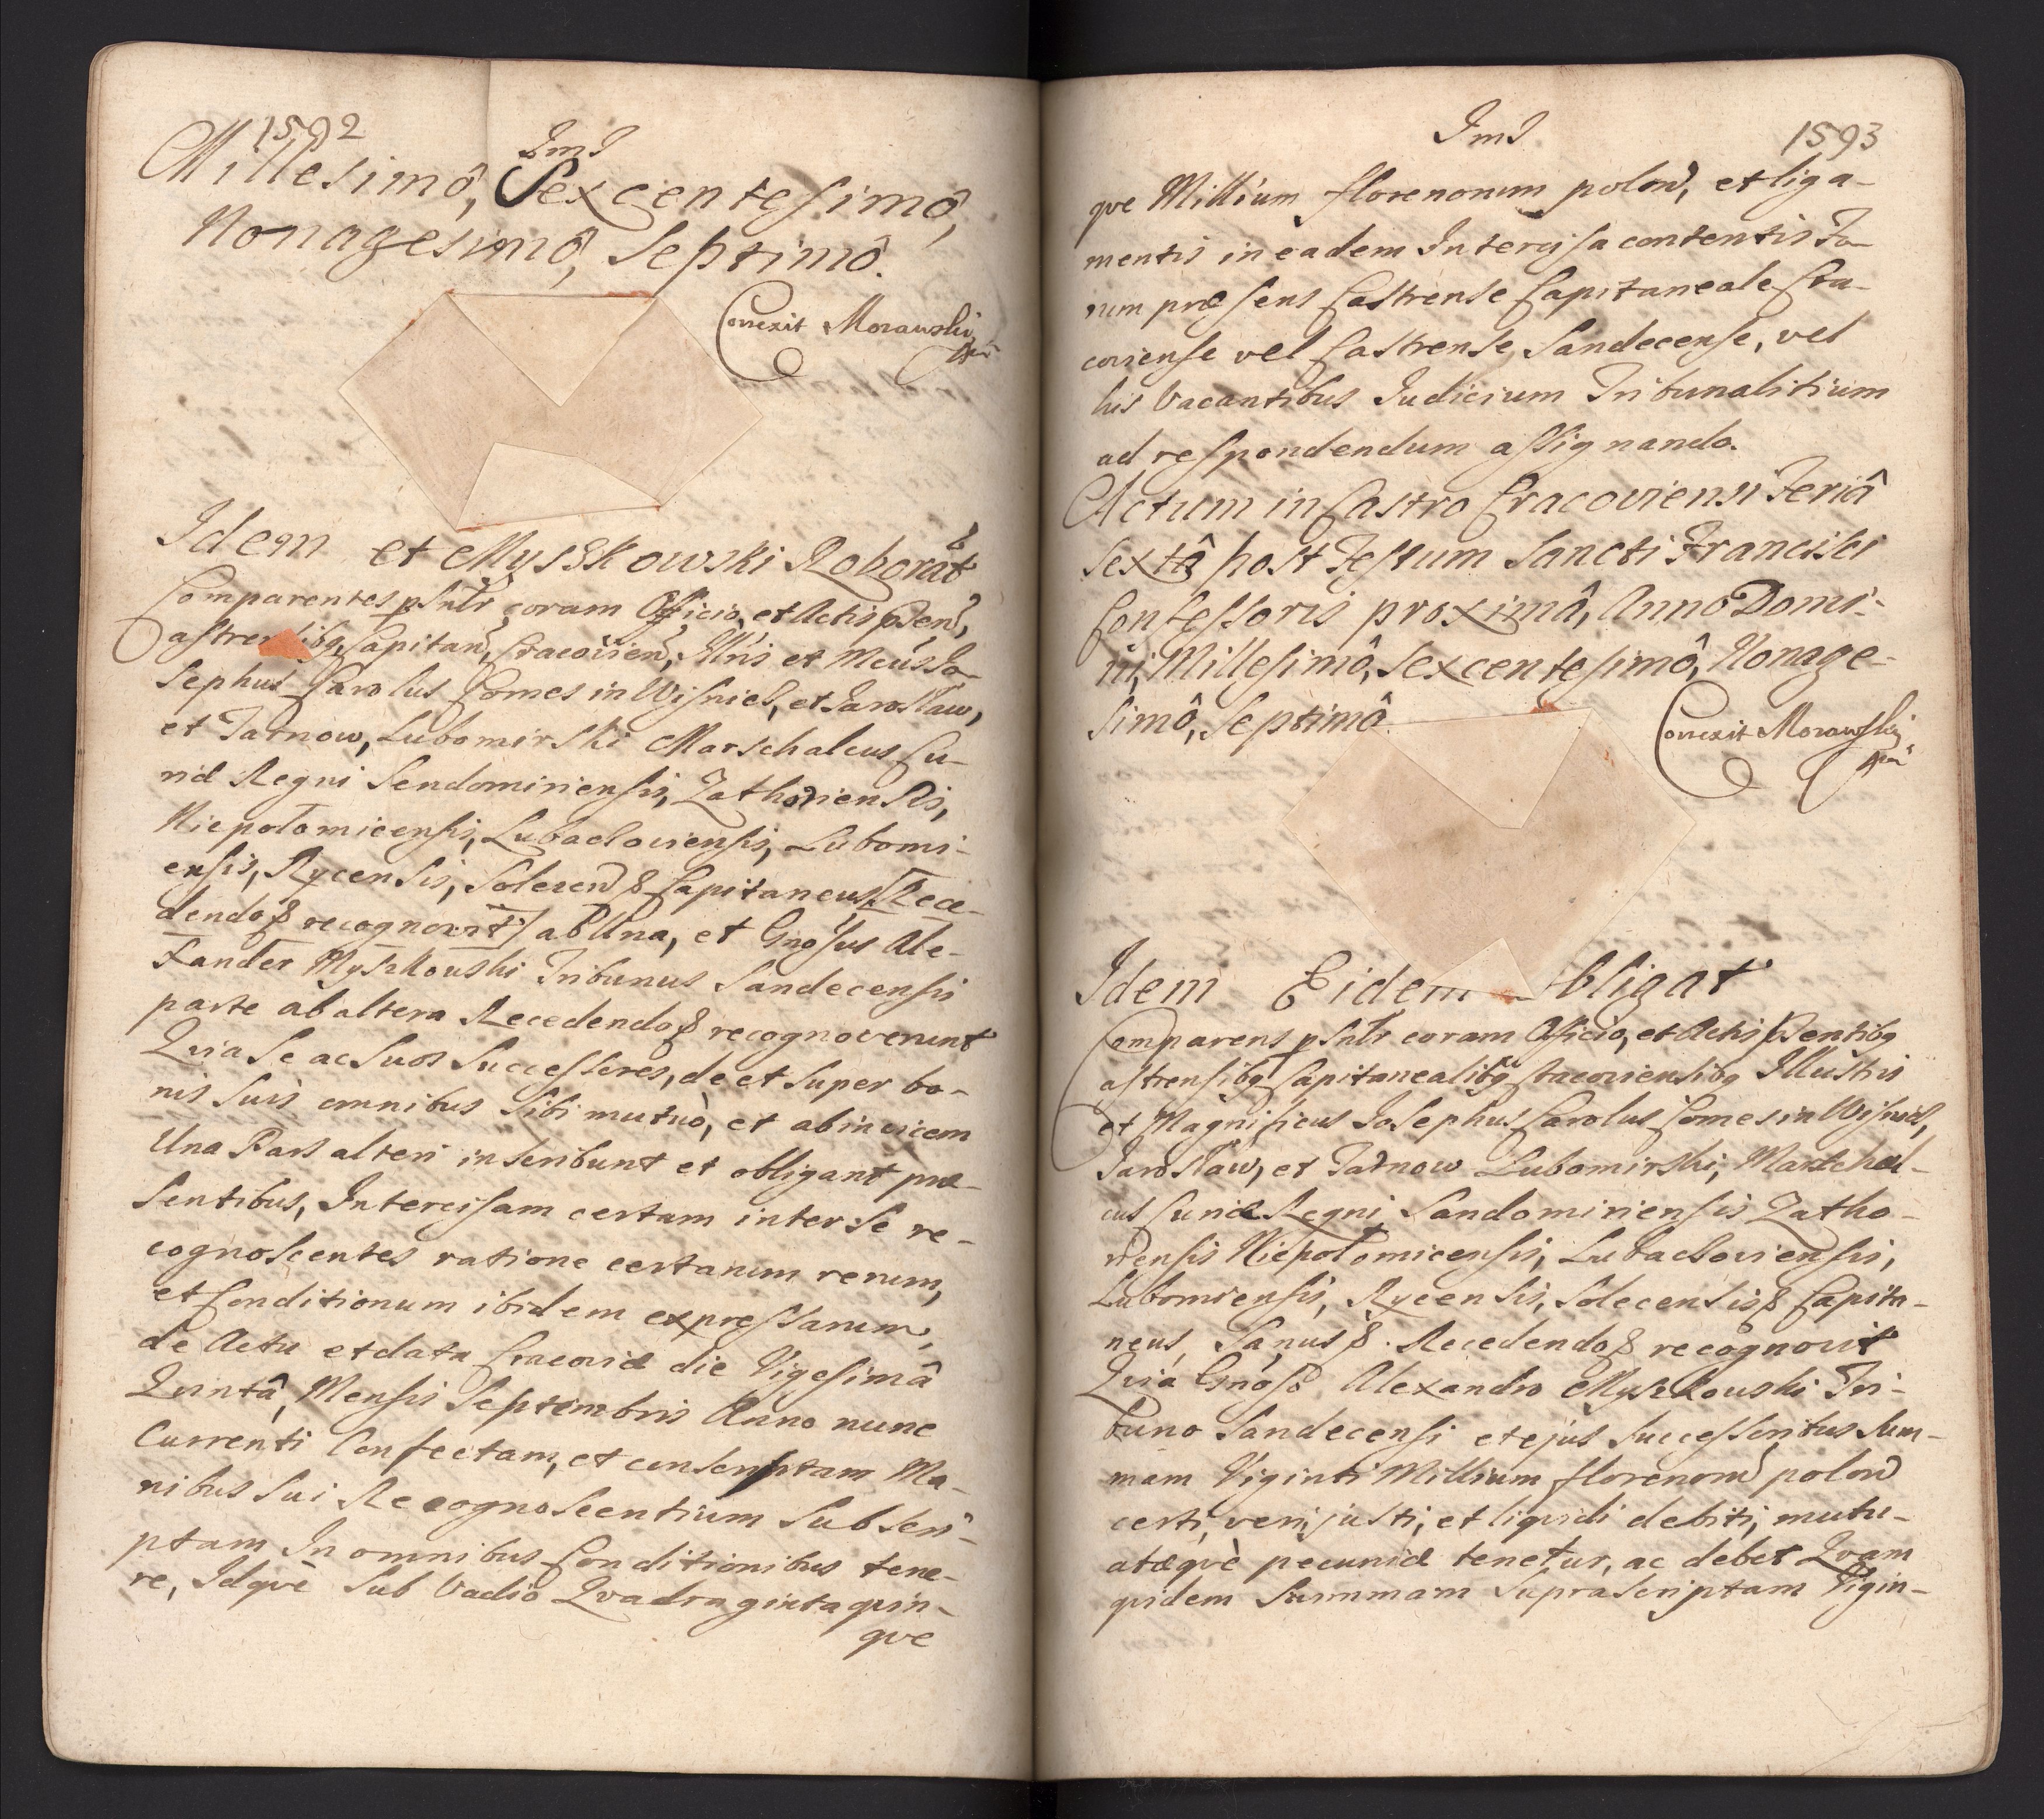 1592
ImI
Millesimô, Sexcentesimô,
Nonagesimô, Septimô.
Correxit Morawski
Idem et Myszkowski Roborat
Comparentes psnlr coram Officio, et Actis psen,
Castrensibq Capitan, Cracovien, Illris et Mcus Jo-
sephus Carolus Comes in Wisnicz, et Jarosław,
et Tarnow, Lubomirski Marschalcus Cu-
riæ Regni Sendomiriensis, Zathoriensis,
Niepołomicensis, Lubaczoviensis, Lubomi-
ensis, Rycensis, Solecen & Capitaneus Rece-
dendo & recognovit ab Una, et Gnosus Ale-
xander Myszkowski Tribunus Sandecensis
parte ab altera Recedendo & recognoverunt
Qvia se ac suos Successores, de et super bo-
nis suis omnibus sibi mutuò, et ab invicem
Una Pars alteri inscribunt et obligant præ-
sentibus, Intercisam certam inter se re-
cognoscentes ratione certarum rerum,
et Conditionum ibidem expressarum,
de Actu et data Cracoviæ die Vigesimâ
Qvintâ, Mensis Septembris Anno nunc
Currenti Confectam, et conscriptam Ma-
nibus sui Recognoscentium Subscri-
ptam In omnibus Conditionibus tene-
re, Idqvè sub Vadio Qvadraginta qvin-
qve
ImI
1593
qve Millium florenorum polon, et liga-
mentis in eadem Intercisa contentis Fo-
rum præsens Castrense Capitaneale Cra-
coviense vel Castrense Sandecense, vel
his Vacantibus Judicium Tribunalitium
ad respondendum assignando.
Actum in Castro Cracoviensi Feriâ
Sextâ post Festum Sancti Francisci
Confessoris proximâ, Anno Domi-
ni, Millesimô, Sexcentesimô, Nonage-
simô, Septimô.
Correxit Morawski
Idem Eidem Obligat
Comparens psnlr coram Officio, et Actis psentibq
Castrensibq Capitanealibq Cracoviensibq Illustris
et Magnificus Josephus Carolus Comes in Wisnicz,
Jarosław, et Tarnow Lubomirski, Marschal-
cus Curiæ Regni Sandomiriensis Zatho-
riensis Niepołomicensis, Lubaczoviensis,
Lubomiensis, Rycensis, Solecensis & Capita-
neus, Sanus & Recedendo & recognovit
Qvia Gnoso Alexandro Myszkowski Tri-
buno Sandecensi et ejus Successoribus Sum-
mam Viginti Millium florenorum polon
certi, veri, justi, et liqvidi debiti, mutu-
atæqvè pecuniæ tenetur, ac debet Qvam
qvidem Summam Suprascriptam Vigin-